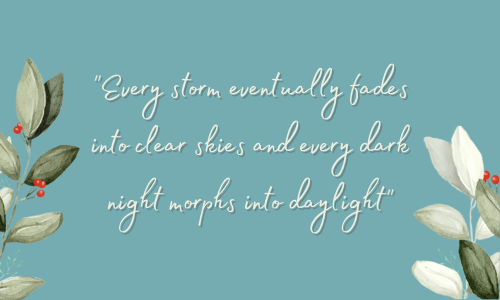 "Every storm eventually fades
into clear skies and every dark
night morphs into daylight"